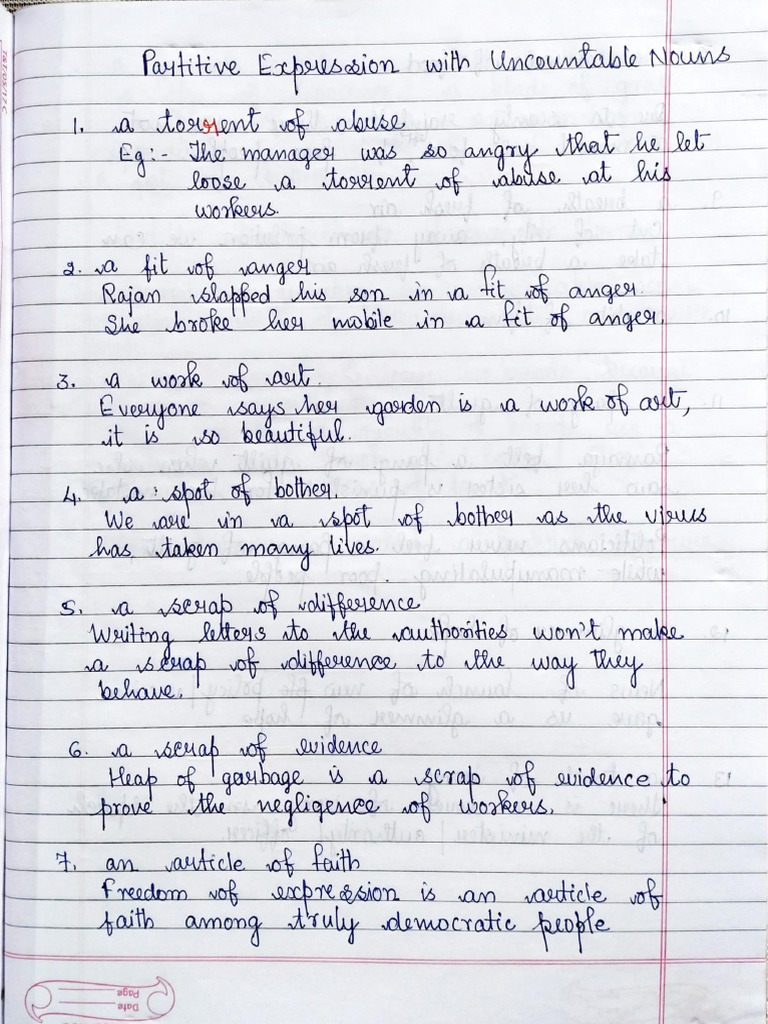 Partitive Expression with Uncountable Nouns
1. a torrent of abuse
Eg:- The manager was so angry that he let
loose a torrent of abuse at his
workers.
2. a fit of anger
Rajan slapped his son in a fit of anger.
She broke her mobile in a fit of anger.
3. a work of art.
Everyone says her garden is a work of art,
it is so beautiful.
4. a spot of bother.
We are in a spot of bother as the virus
has taken many lives.
5. a scrap of difference
Writing letters to the authorities won't make
a scrap of difference to the way they
behave.
6. a scrap of evidence
Heap of garbage is a scrap of evidence to
prove the negligence of workers.
7. an article of faith
Freedom of expression is an article of
faith among truly democratic people
Page
Date